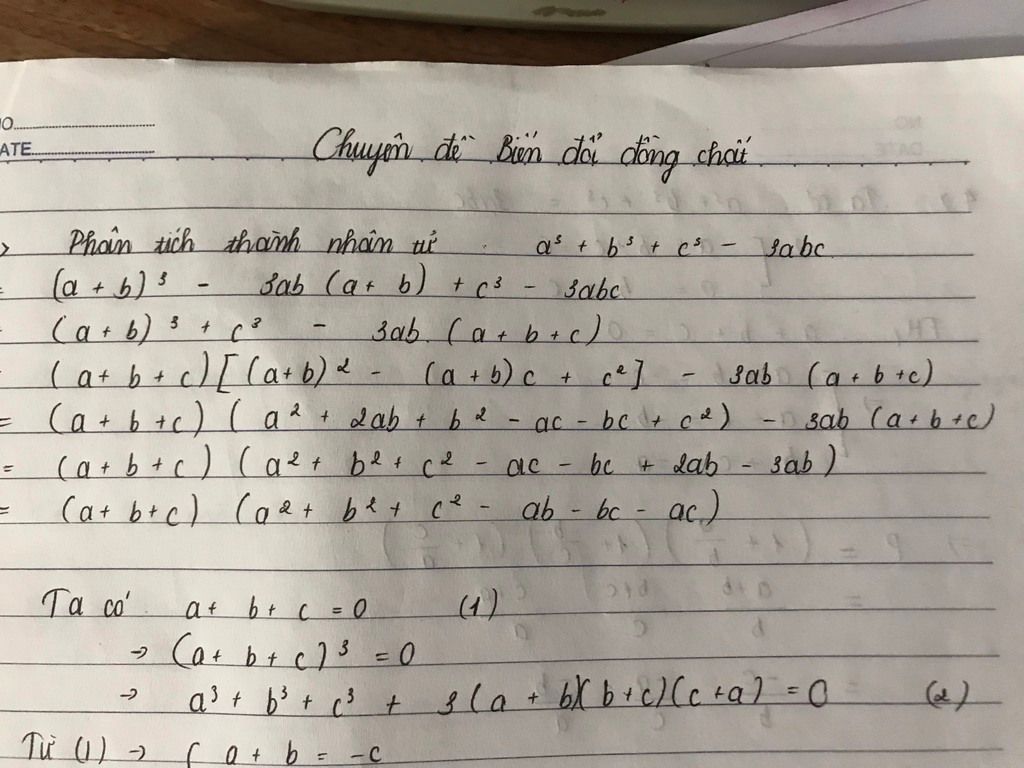 NO
DATE
Chuyên đề Biến đổi đồng chất
> Phân tích thành nhân tử a³ + b³ + c³ - 3abc
= (a + b)³ - 3ab (a + b) + c³ - 3abc
= (a + b)³ + c³ - 3ab (a + b + c)
= (a + b + c) [(a+b)² - (a + b)c + c²] - 3ab (a + b + c)
= (a + b + c) (a² + 2ab + b² - ac - bc + c²) - 3ab (a + b + c)
= (a + b + c) (a² + b² + c² - ac - bc + 2ab - 3ab)
= (a + b + c) (a² + b² + c² - ab - bc - ac)
Ta có a + b + c = 0 (1)
→ (a + b + c)³ = 0
→ a³ + b³ + c³ + 3(a + b)(b + c)(c + a) = 0 (2)
Từ (1) → ( a + b = -c